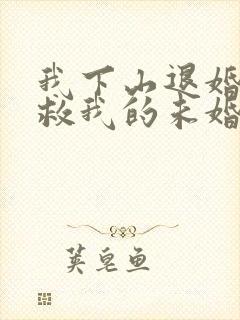 我下山退婚
救我的未婚
荚皂鱼